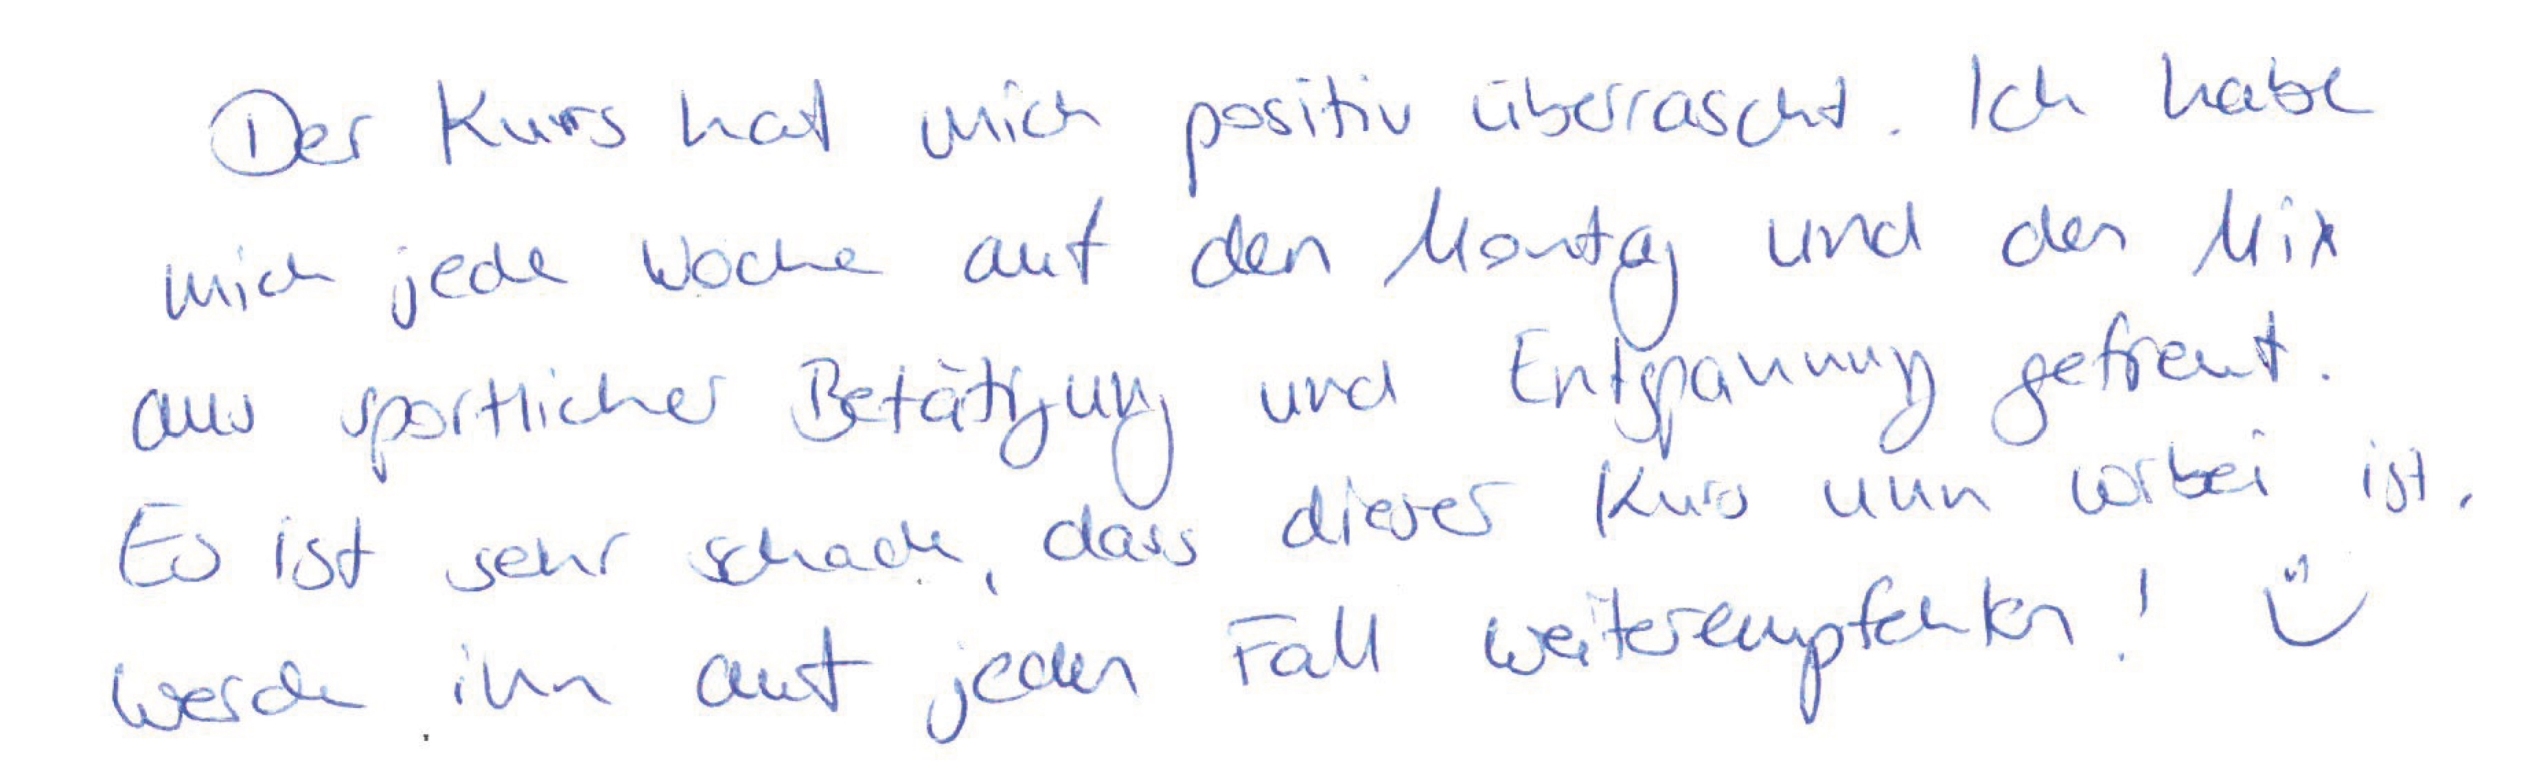 Der Kurs hat mich positiv überrascht. Ich habe
mich jede Woche auf den Montag und den Mix
aus sportlicher Betätigung und Entspannung gefreut.
Es ist sehr schade, dass dieser Kurs nun vorbei ist.
werde ihn auf jeden Fall weiterempfehlen! Ü